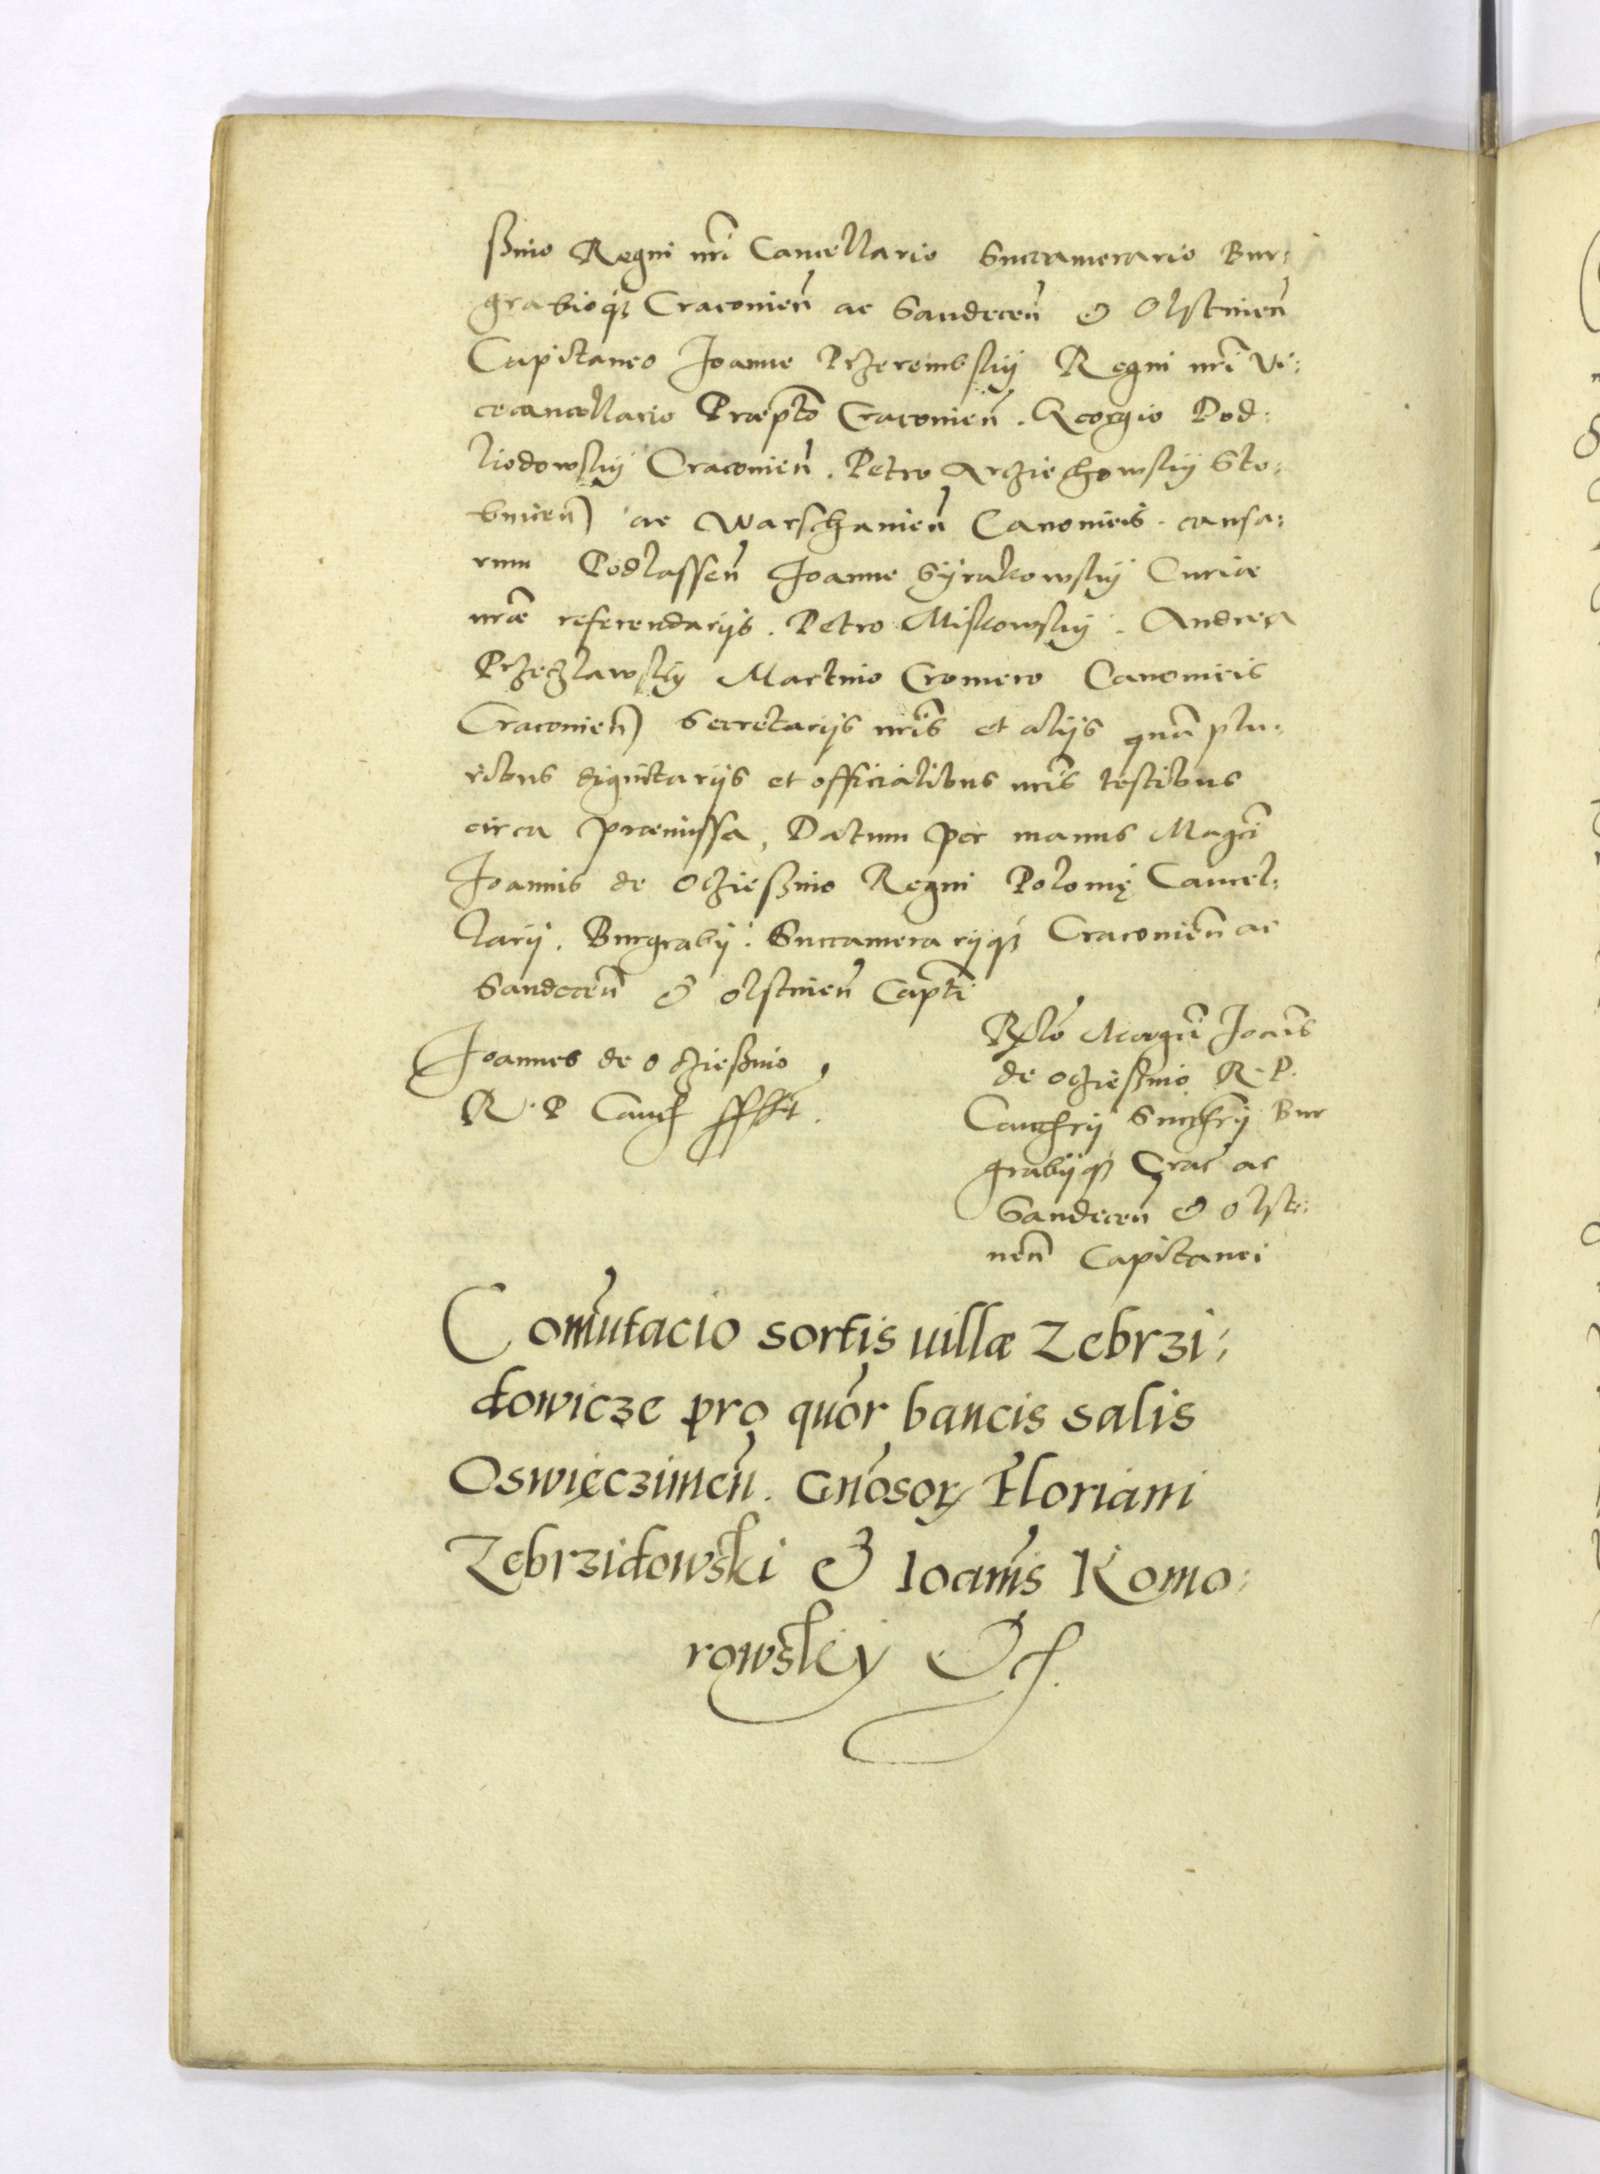 ßnio Regni nri Cancellario Succamerario Bur:
grabioq; Craconien ac Sandecen & Olstinen
Capitaneo Joanne Przerembskij Regni nri Vi:
cecancellario Præpto Craconien. Georgio Pod:
liodowskij Craconien. Petro Arziechowskij Sto:
bnicen ac Warschauien Canonicis. causa:
rum Podlassen Joanne Syrakowskij Curiæ
nræ referendarijs. Petro Miskowskij. Andrea
Przezlawskij Martino Cromero Canonicis
Craconien Secretarijs nris et alijs quā plu:
ribus dignitarijs et officialibus nris testibus
circa præmissa, Datum per manus Magci
Joannis de Oczießnio Regni Polonię Cancel:
larij. Burgrabij. Succamerarijq; Craconien ac
Sandecen & Olstinen Capti
Joannes de Oczießnio
R. P Canc sspt.
Rlo Magci Joānis
de Oczießnio R. P.
Cancrij Succrij Bur
grabijq; Crac ac
Sandecen & Olste:
nen Capitanei
Comutacio sortis uillæ Zebrzi:
dowicze pro quor bancis salis
Oswięczimen. Gnosor Floriani
Zebrzidowski & Ioānis Komo:
rowskiy &c.